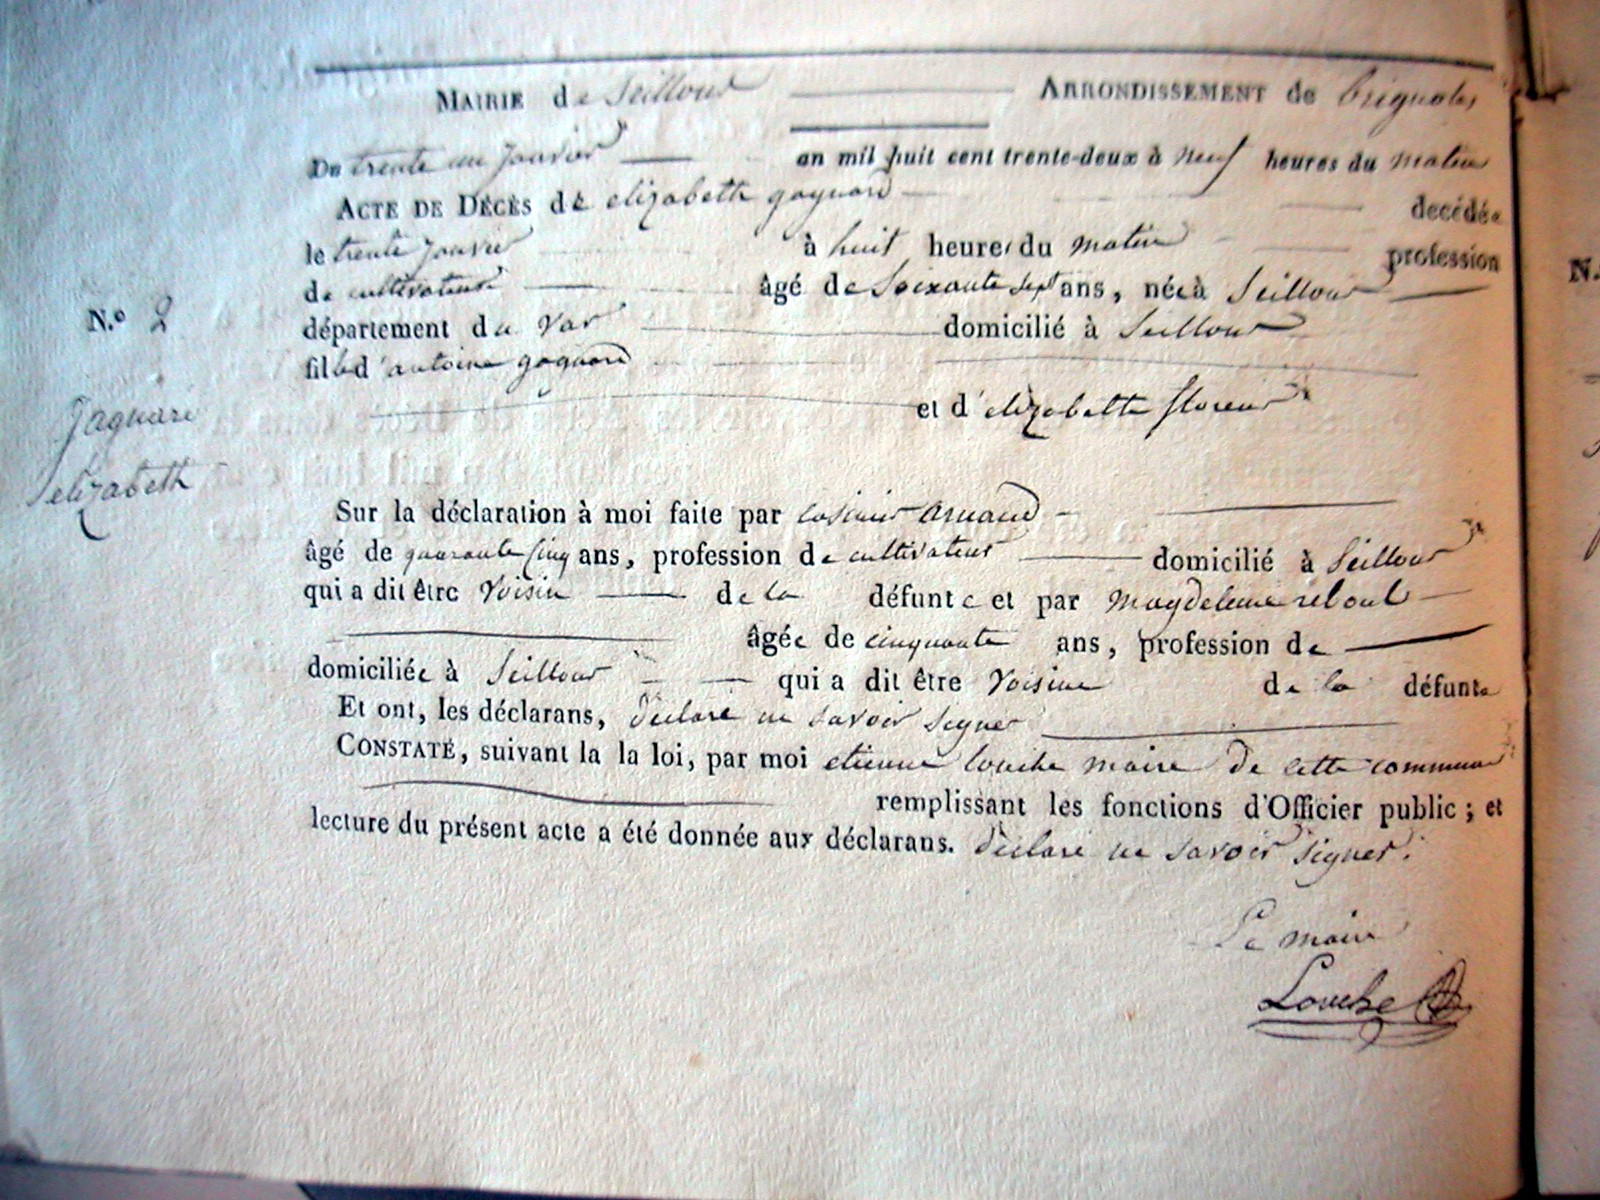 MAIRIE de Seillons ARRONDISSEMENT de brignoles
Du trente un janvier an mil huit cent trente-deux à neuf heures du matin
ACTE DE DÉCÈS de elizabeth gagnard decédée
le trente janvier à huit heures du matin profession
de cultivateur âgé de Soixante sept ans, née à Seillons
département du Var domicilié à Seillons
fille d'antoine gagnard
et d'elizabeth
N.º 2
gagnard
elizabeth
Sur la déclaration à moi faite par casimir arnaud
âgé de quarante cinq ans, profession de cultivateur domicilié à Seillons
qui a dit être Voisin de la défunte et par magdeleine reboul
âgée de cinquante ans, profession de
domiciliée à Seillons qui a dit être Voisine de la défunte
Et ont, les déclarans, déclaré ne savoir signer
CONSTATÉ, suivant la la loi, par moi etienne Louche maire de cette commune
remplissant les fonctions d'Officier public; et
lecture du présent acte a été donnée aux déclarans. déclaré ne savoir signer.
Le maire
Louche
N.